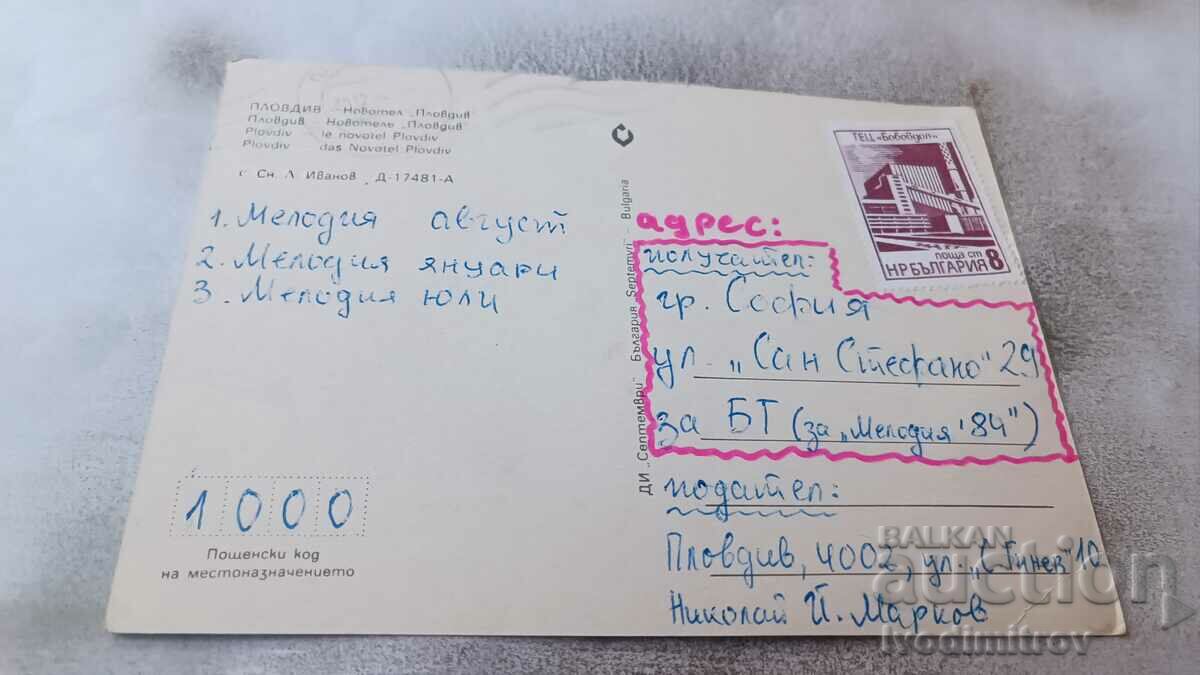 ПЛОВДИВ – Новотел „Пловдив"
Пловдив – Новотель „Пловдив"
Plovdiv – le novotel Plovdiv
Plovdiv – das Novotel Plovdiv
Сн. Л. Иванов Д-17481-А
1. Мелодия август
2. Мелодия януари
3. Мелодия юли
1000
Пощенски код
на местоназначението
ДИ „Септември" България „Septemvri" – Bulgaria
ТЕЦ «Бобовдол»
поща ст
НР БЪЛГАРИЯ 8
адрес:
получател:
гр. София
ул. „Сан Стефано" 29
за БТ (за „Мелодия '84")
подател:
Пловдив, 4002, ул. „С. Гинев" 10
Николай Й. Марков
BALKAN
auction
ivodimitrov